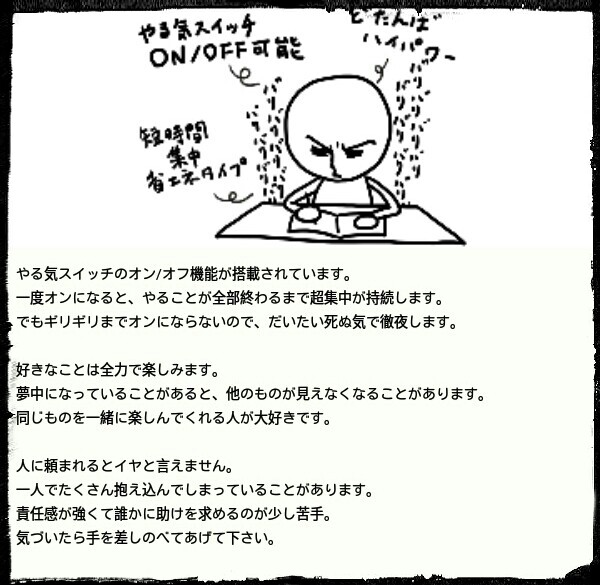 やる気スイッチ
ON/OFF可能
どたんば
ハイパワー
バリバリバリバリ
バリバリバリバリ
短時間
集中
省エネタイプ
やる気スイッチのオン/オフ機能が搭載されています。
一度オンになると、やることが全部終わるまで超集中が持続します。
でもギリギリまでオンにならないので、だいたい死ぬ気で徹夜します。
好きなことは全力で楽しみます。
夢中になっていることがあると、他のものが見えなくなることがあります。
同じものを一緒に楽しんでくれる人が大好きです。
人に頼まれるとイヤと言えません。
一人でたくさん抱え込んでしまっていることがあります。
責任感が強くて誰かに助けを求めるのが少し苦手。
気づいたら手を差しのべてあげて下さい。